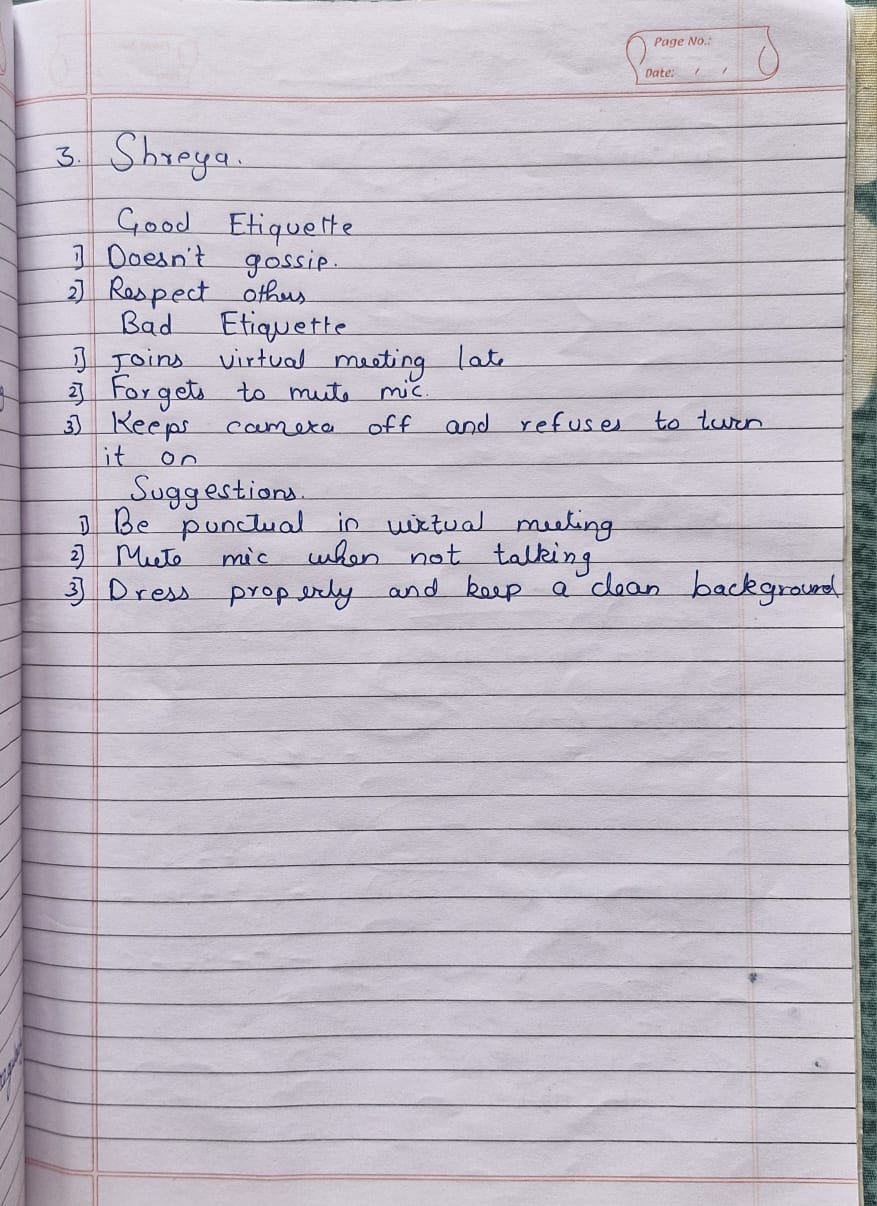 Page No.:
Date: / /
3. Shreya.
Good Etiquette
1] Doesn't gossip.
2] Respect others
Bad Etiquette
1] Joins virtual meeting late
2] Forgets to mute mic.
3] Keeps camera off and refuses to turn
it on
Suggestions.
1] Be punctual in virtual meeting
2] Mute mic when not talking
3] Dress properly and keep a clean background